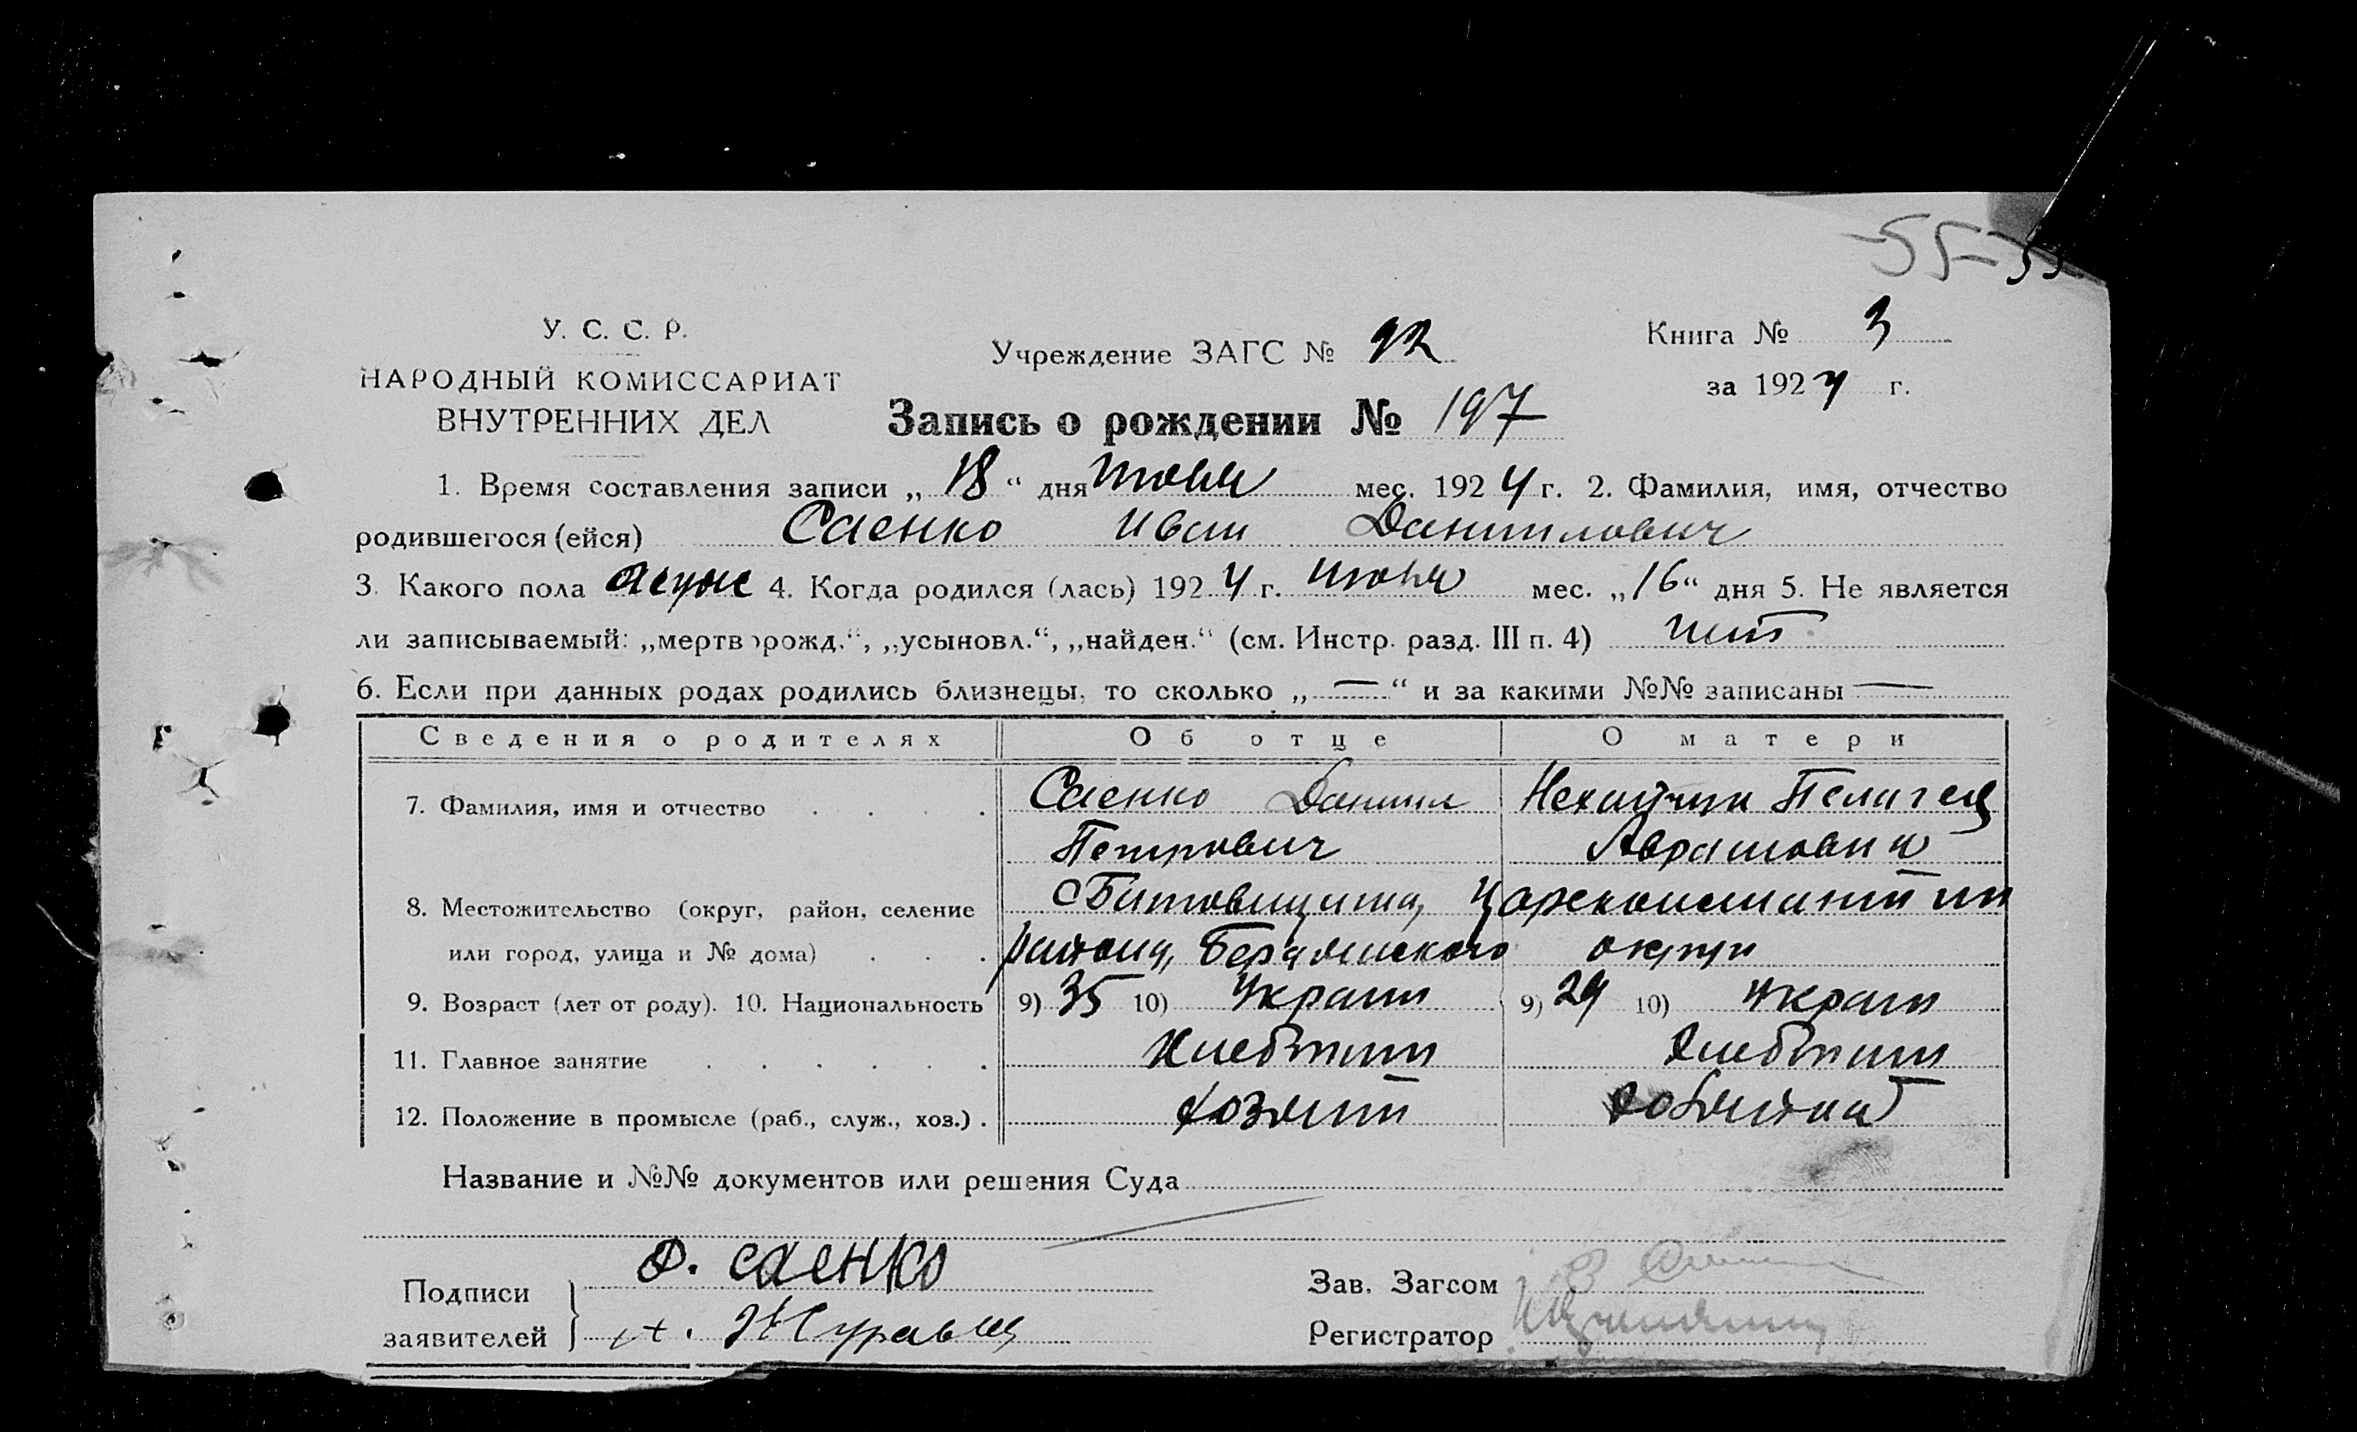 55-55
У. С. С. Р.
НАРОДНЫЙ КОМИССАРИАТ
ВНУТРЕННИХ ДЕЛ
Учреждение ЗАГС № 92
Книга № 3
за 1924 г.
Запись о рождении № 197
1. Время составления записи „18“ дня июня мес. 1924 г. 2. Фамилия, имя, отчество
родившегося (ейся) Саенко Иван Даниилович
3. Какого пола мужс 4. Когда родился (лась) 1924 г. июня мес. „16“ дня 5. Не является
ли записываемый: „мертворожд.“, „усыновл.“, „найден.“ (см. Инстр. разд. III п. 4) нет
6. Если при данных родах родились близнецы, то сколько „—“ и за какими №№ записаны —
Сведения о родителях Об отце О матери
7. Фамилия, имя и отчество Саенко Даниил Пелагея
Петрович Аврамовна
8. Местожительство (округ, район, селение
или город, улица и № дома) района, округи
9. Возраст (лет от роду). 10. Национальность 9) 35 10) Украин 9) 29 10) Украин
11. Главное занятие Хлебопаш Хлебопаш
12. Положение в промысле (раб., служ., хоз.) хозяин
Название и №№ документов или решения Суда
Подписи заявителей
Д. саенко
Журавец
Зав. Загсом
Регистратор